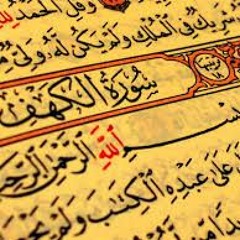 وَقُلِ الْحَمْدُ لِلَّهِ
شَرِيكٌ فِي الْمُلْكِ وَلَمْ يَكُن لَّهُ وَلِيٌّ
سُورَةُ الْكَهْفِ
اللَّهِ الرَّحْمَٰنِ الرَّحِيمِ
عَلَىٰ عَبْدِهِ الْكِتَٰبَ وَلَمْ